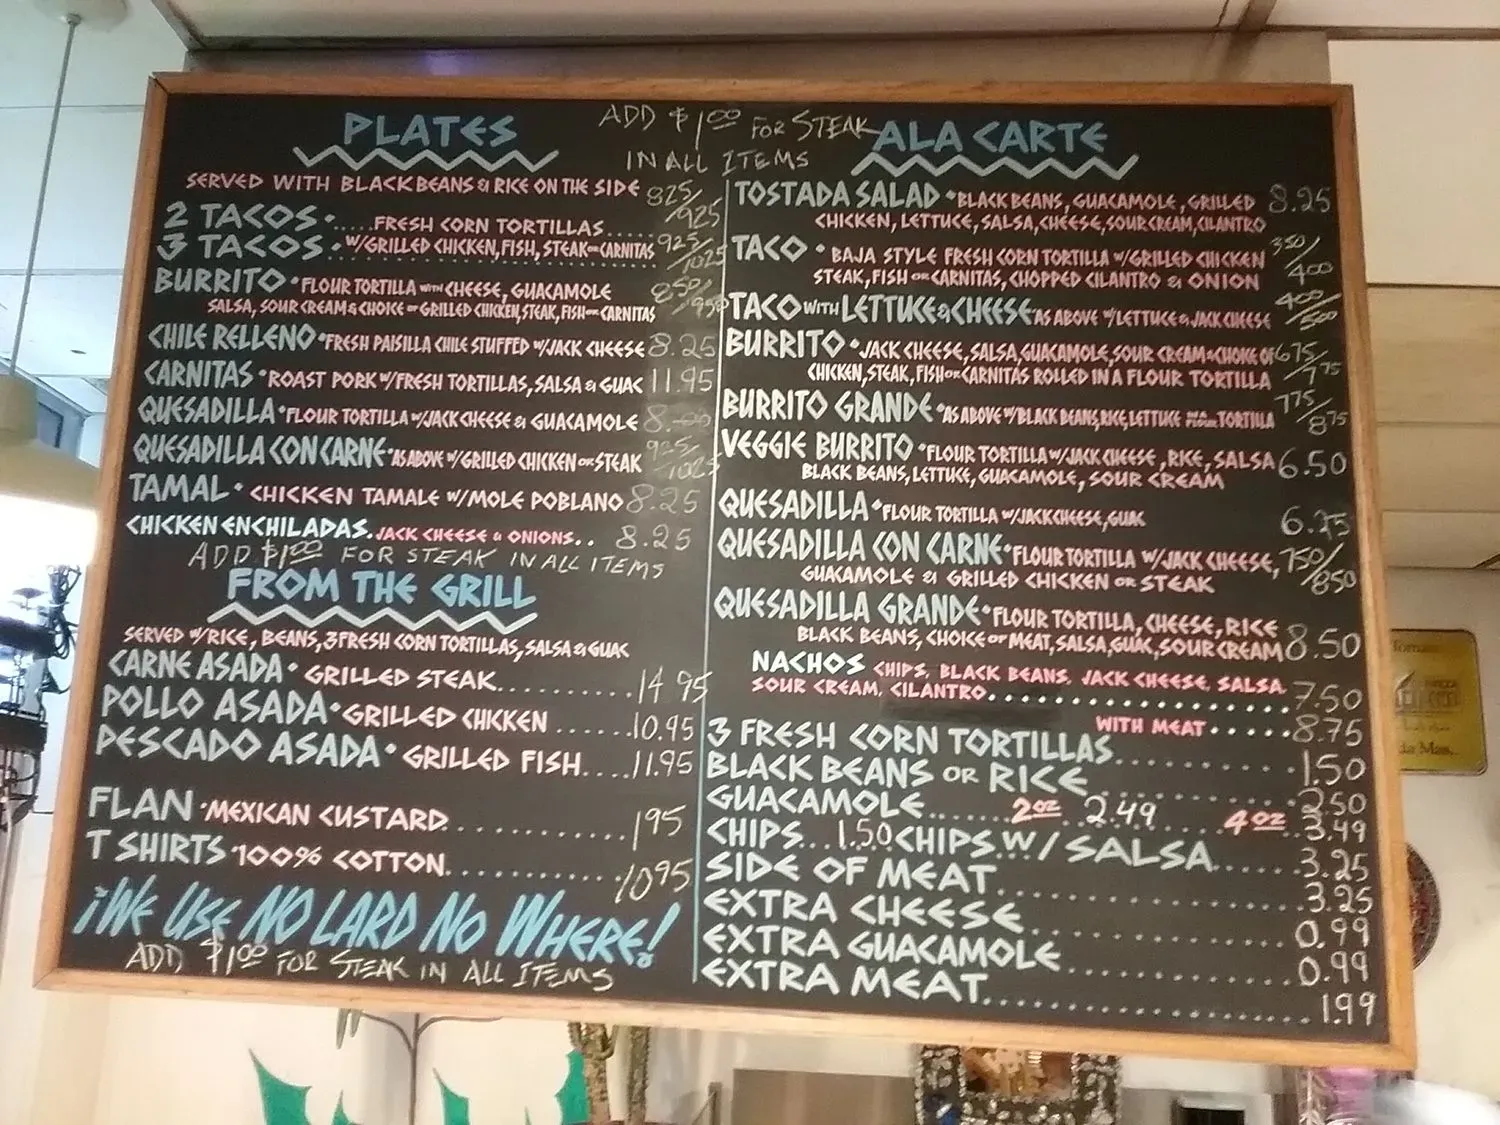 ADD $1.00 FOR STEAK
IN ALL ITEMS
PLATES
SERVED WITH BLACK BEANS & RICE ON THE SIDE
2 TACOS · .....FRESH CORN TORTILLAS...... 825/925
3 TACOS · W/GRILLED CHICKEN, FISH, STEAK OR CARNITAS 925/1025
BURRITO · FLOUR TORTILLA WITH CHEESE, GUACAMOLE 850/950
SALSA, SOUR CREAM & CHOICE OF GRILLED CHICKEN, STEAK, FISH OR CARNITAS
CHILE RELLENO · FRESH PAISILLA CHILE STUFFED W/JACK CHEESE 8.25
CARNITAS · ROAST PORK W/FRESH TORTILLAS, SALSA & GUAC 11.95
QUESADILLA · FLOUR TORTILLA W/JACK CHEESE & GUACAMOLE 8.00
QUESADILLA CON CARNE · AS ABOVE W/GRILLED CHICKEN OR STEAK 925/1025
TAMAL · CHICKEN TAMALE W/MOLE POBLANO 8.25
CHICKEN ENCHILADAS. JACK CHEESE & ONIONS.. 8.25
ADD $1.00 FOR STEAK IN ALL ITEMS
FROM THE GRILL
SERVED W/RICE, BEANS, 3 FRESH CORN TORTILLAS, SALSA & GUAC
CARNE ASADA · GRILLED STEAK.......... 14 95
POLLO ASADA · GRILLED CHICKEN ...... 10.95
PESCADO ASADA · GRILLED FISH.... 11.95
FLAN · MEXICAN CUSTARD............ 1 95
T SHIRTS · 100% COTTON............ 10 95
¡WE USE NO LARD NO WHERE!
ADD $1.00 FOR STEAK IN ALL ITEMS
ALA CARTE
TOSTADA SALAD · BLACK BEANS, GUACAMOLE, GRILLED 8.25
CHICKEN, LETTUCE, SALSA, CHEESE, SOUR CREAM, CILANTRO
TACO · BAJA STYLE FRESH CORN TORTILLA W/GRILLED CHICKEN 350/400
STEAK, FISH OR CARNITAS, CHOPPED CILANTRO & ONION
TACO WITH LETTUCE & CHEESE · AS ABOVE W/LETTUCE & JACK CHEESE 400/500
BURRITO · JACK CHEESE, SALSA, GUACAMOLE, SOUR CREAM & CHOICE OF 675/775
CHICKEN, STEAK, FISH OR CARNITAS ROLLED IN A FLOUR TORTILLA
BURRITO GRANDE · AS ABOVE W/BLACK BEANS, RICE, LETTUCE IN A FLOUR TORTILLA 775/875
VEGGIE BURRITO · FLOUR TORTILLA W/JACK CHEESE, RICE, SALSA 6.50
BLACK BEANS, LETTUCE, GUACAMOLE, SOUR CREAM
QUESADILLA · FLOUR TORTILLA W/JACK CHEESE, GUAC 6.25
QUESADILLA CON CARNE · FLOUR TORTILLA W/JACK CHEESE, 750/850
GUACAMOLE & GRILLED CHICKEN OR STEAK
QUESADILLA GRANDE · FLOUR TORTILLA, CHEESE, RICE
BLACK BEANS, CHOICE OF MEAT, SALSA, GUAC, SOUR CREAM 8.50
NACHOS CHIPS, BLACK BEANS, JACK CHEESE, SALSA,
SOUR CREAM, CILANTRO.................... 7.50
WITH MEAT..... 8.75
3 FRESH CORN TORTILLAS............. 1.50
BLACK BEANS OR RICE............. 2.50
GUACAMOLE...... 2 OZ 2.49 ..... 4 OZ .. 3.49
CHIPS... 1.50 CHIPS W/ SALSA...... 3.25
SIDE OF MEAT.................. 3.25
EXTRA CHEESE................. 0.99
EXTRA GUACAMOLE............. 0.99
EXTRA MEAT................... 1.99